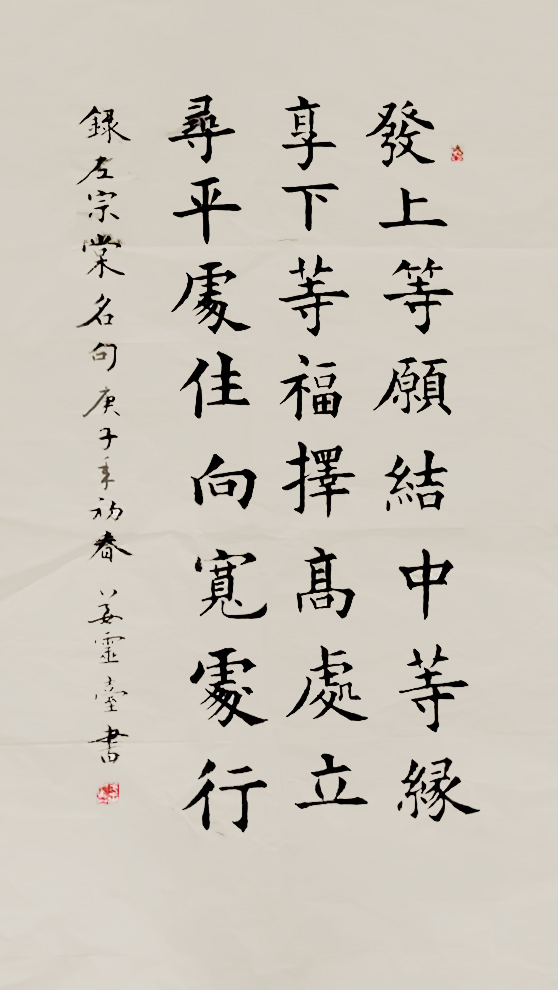 發上等願結中等緣
享下等福擇高處立
尋平處住向寬處行
錄左宗棠名句庚子年初春 姜靈臺書